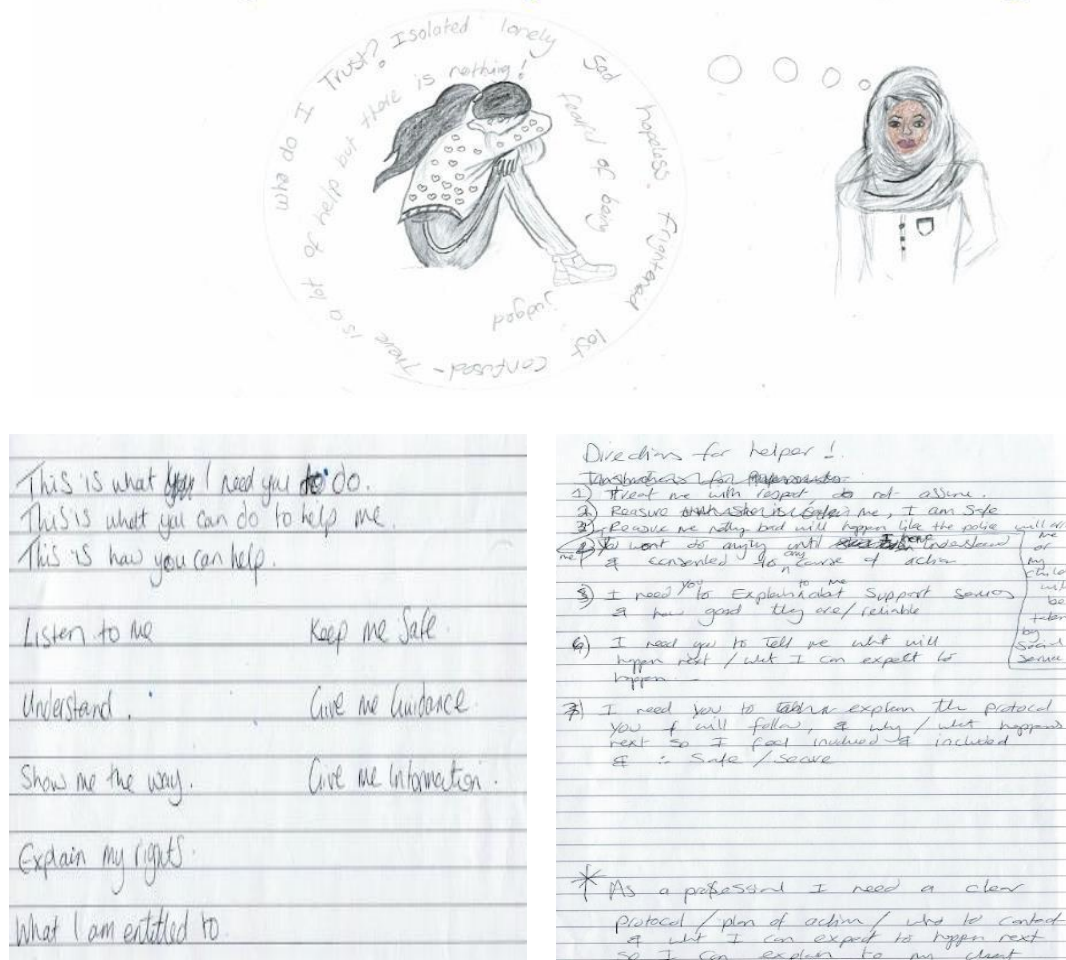 who do I Trust? Isolated lonely sad hopeless. frightened lost confused - There is a lot of help but there is nothing!
feard of being judged
This is what I need you to do.
This is what you can do to help me.
This is how you can help.
Listen to me
Keep me Safe.
Understand.
Give me Guidance.
Show me the way.
Give me Information.
Explain my rights.
What I am entitled to
Directions for helper!
1) Treat me with respect, do not assume.
2) Reasure me, I am Safe
3) Reasure me nothing bad will happen like the police will
me or my child will be taken by Social Service
4) You wont do anything until I have understand
& consented to any course of action
5) I need you to Explain to me about Support Services
& how good they are / reliable
6) I need you to Tell me what will
happen next / what I can expect to
happen
7) I need you to explain the protocol
you will follow, & why / what happens
next so I feel involved & included
& ∴ Safe / Secure
* As a professional I need a clear
protocol / plan of action / who to contact
& what I can expect to happen next
so I can explain to my client